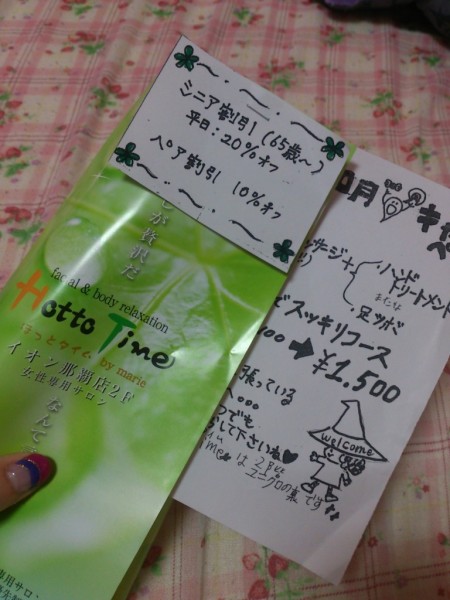 シニア割引(65歳〜)
平日：20%オフ
ペア割引 10%オフ
が贅沢だ
facial & body relaxation
Hotto Time
ほっとタイム by marie
イオン那覇店2F
女性専用サロン
なんて
専用サロン
10月
ハンド
トリートメント
または
足ツボ
でスッキリコース
➡ ¥1.500
張っている
つでも
して下さいね♥
は2階
ユニクロの裏です
welcome